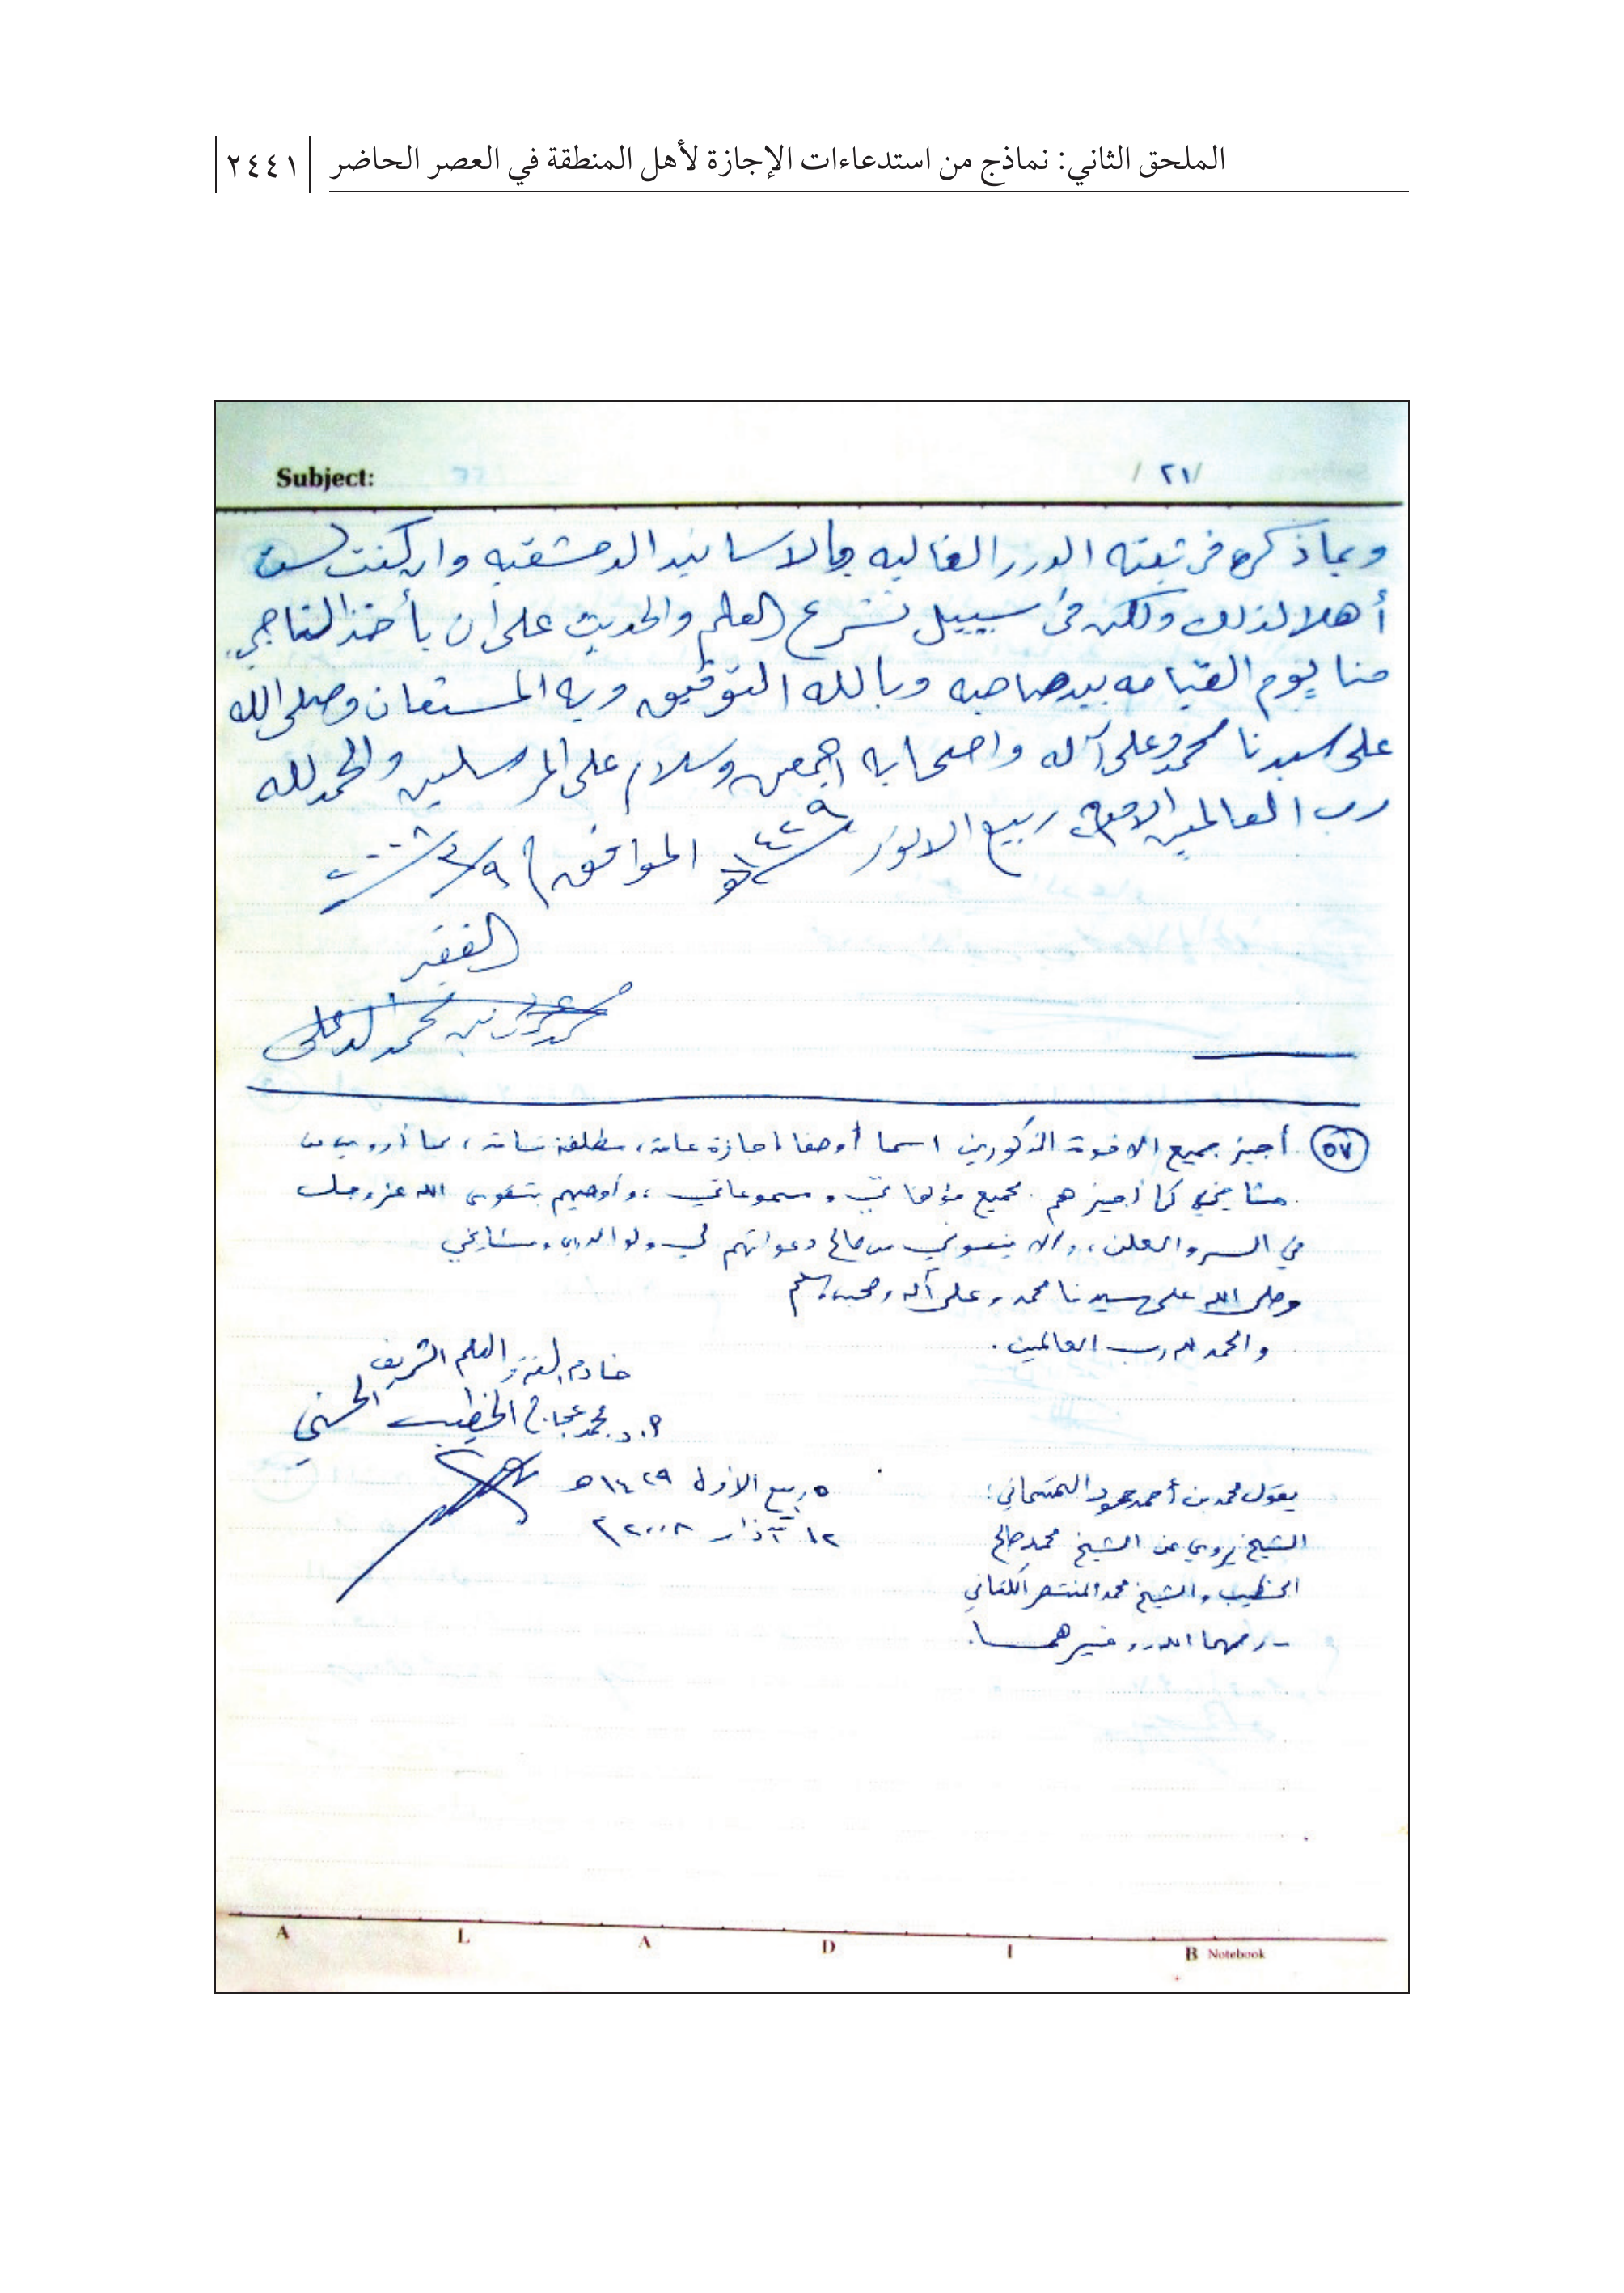 الملحق الثاني: نماذج من استدعاءات الإجازة لأهل المنطقة في العصر الحاضر ٢٤٤١
Subject: / ٢١/
وبما ذكره في ثبته الدرر الغاليه والاسانيد الدمشقيه وان كنت لست
أهلا لذلك ولكن في سبيل نشرع العلم والحديث على أن يأخذ الناجي
منا يوم القيامه بيد صاحبه وبالله التوفيق وبه المستعان وصلى الله
على سيدنا محمد وعلى آله واصحابه اجمعين وسلام على المرسلين والحمد لله
رب العالمين ربيع الانور ١٤٢٩ هـ الموافق ٩/٣/٢٠٠٨
الفقير
بن محمد
٥٧ أجيز جميع الاخوة المذكورين اسما أو صفا اجازة عامة، مطلقة تامة، بما أرويه عن
مشايخي كما أجيزهم بجميع مؤلفاتي ومسموعاتي، وأوصيهم بتقوى الله عز وجل
في السر والعلن، وألا ينسوني من صالح دعواتهم لي ولوالدي ومشايخي
وصلى الله على سيدنا محمد وعلى آله وصحبه وسلم
والحمد لله رب العالمين.
خادم السنة والعلم الشريف
أ.د. محمد عجاج الخطيب الحسني
٥ ربيع الأول ١٤٢٩ هـ
١٢ آذار ٢٠٠٨ م
يقول محمد بن أحمد حمود التمتماني:
الشيخ يروي عن الشيخ محمد صالح
الخطيب والشيخ محمد المنتصر الكتاني
- رحمهما الله - وغيرهما.
A L A D I B Notebook